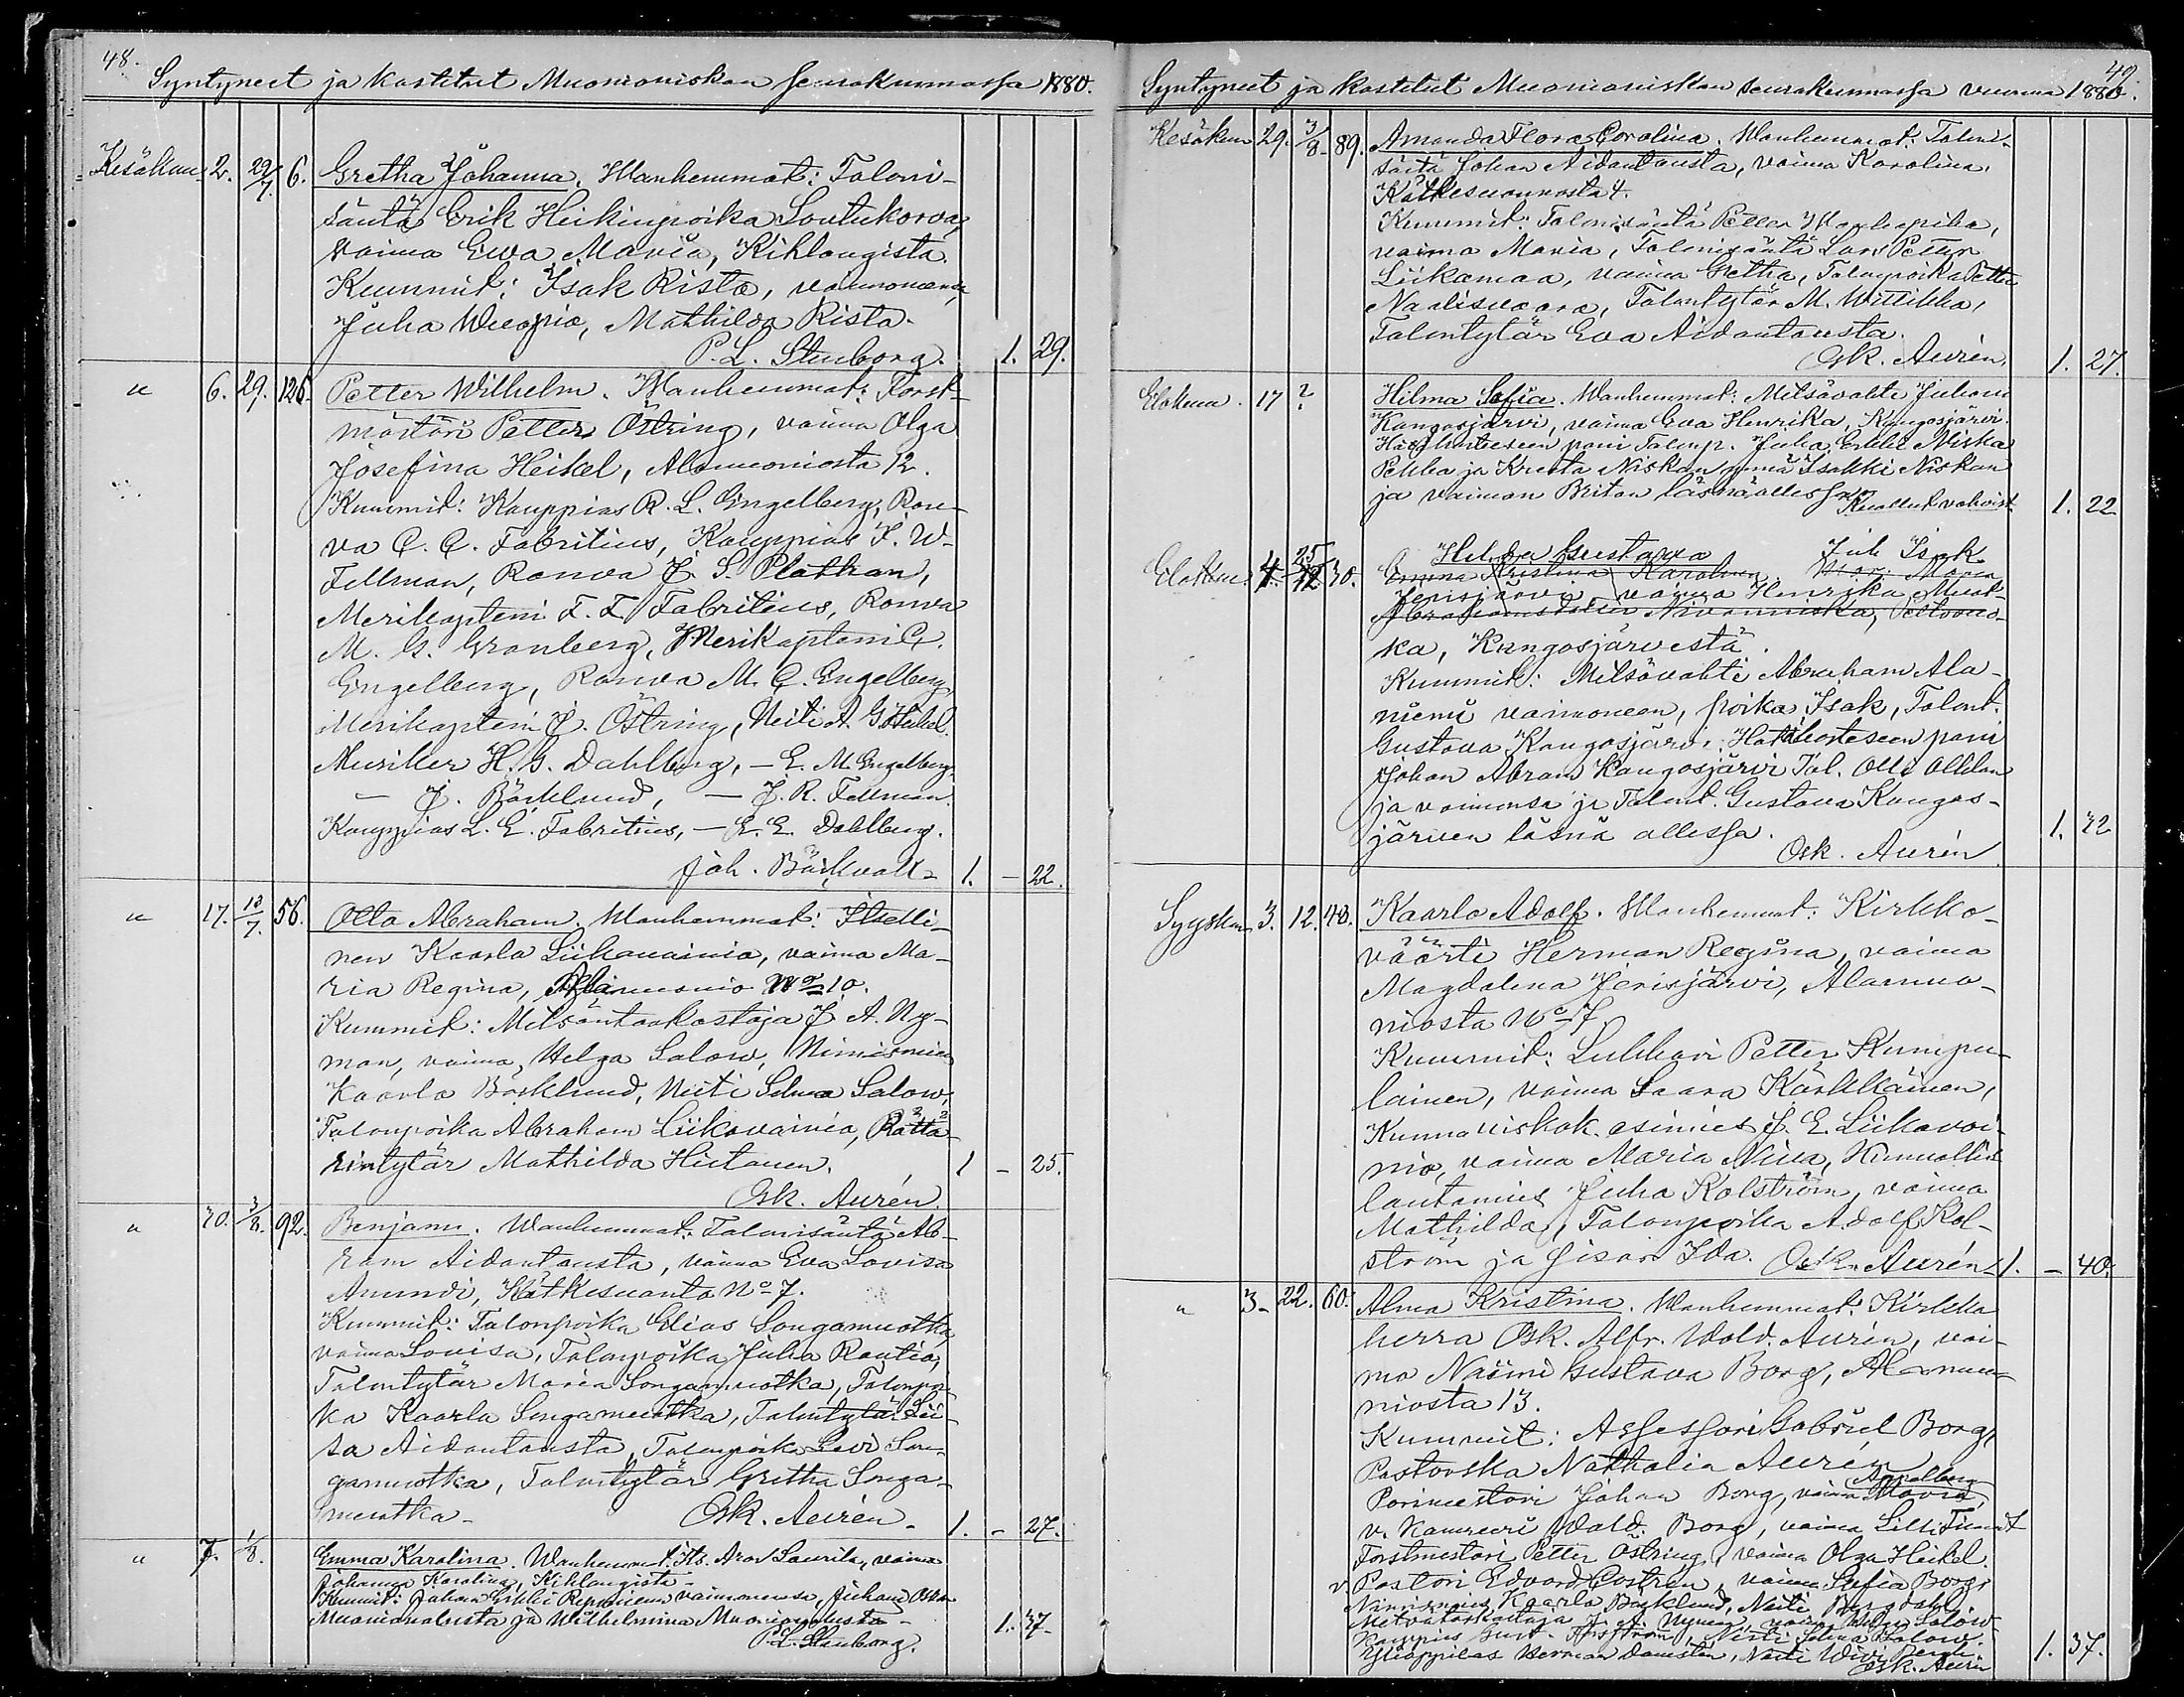 48.
Syntyneet ja kastetut Muonioniskan seurakunnassa 1880.
Kesäkuu 2. 29/7. 6. Gretha Johanna. Wanhemmat: Taloni-
säntä Erik Heikinpoika Soutukorva,
vaimo Ewa Maria, Kihlangista.
Kummit: Isak Rista, vaimonensa,
Juha Wuopio, Mathilda Rista.
P. L. Stenborg. 1. 29.
" 6. 29. 126. Petter Wilhelm. Wanhemmat: Forst-
mästäri Petter Östring, vaimo Olga
Josefina Heikel, Alamuoniosta 12.
Kummit: Kauppias R. L. Engelberg, Rou-
va C. C. Fabritius, Kauppias F. W.
Fellman, Rouva J. S. Plathan,
Merikapteni F. F. Fabritius, Rouva
M. G. Granberg, Merikapteni C.
Engelberg, Rouva M. C. Engelberg,
Merikapteni J. Östring, Neiti A. G. Heikel.
H. G. Dahlberg, — E. M. Engelberg,
— J. Bäcklund, — J. R. Fellman.
Kauppias L. E. Fabritius, — E. E. Dahlberg.
Joh. Bäckvall 1. - 22.
" 17. 18/7. 56. Otto Abraham. Wanhemmat: Itselli-
nen Kaarlo Liikavainio, vaimo Ma-
ria Regina, Alamuonio No 10.
Kummit: J. A. Ny-
man, vaimo, Helga Salow, Nimismies
Kaarlo Bäcklund, Neiti Selma Salow,
Talonpoika Abraham Liikavainio, Rättä-
rintytär Mathilda Hietanen. 1 - 25.
Osk. Aurén.
" 30. 3/8. 92. Benjam. Wanhemmat: Talonisäntä Ab-
ram Aidantausta, vaimo Eva Lovisa
Amundi, Kätkesuanto No 7.
Kummit: Talonpoika Elias Songamuotka,
vaimo Lovisa, Talonpoika Juha Rautio,
Talontytär Maria Songamuotka, Talonpoi-
ka Kaarlo Songamuotka, Talontytär Lii-
sa Aidantausta, Talonpoika Levi Son-
gamuotka, Talontytär Gretha Songa-
muotka. Osk. Aurén. 1. - 27.
" 7. 1/8. Emma Karolina. Wanhemmat: Its. Aron Laurila, vaimo
Johanna Karolina, Kihlangista.
Kummit: Johan Erkki vaimonensa, Juhani
Muonionalusta ja Wilhelmina Muonionalusta.
P. L. Stenborg. 1. 37.
49.
Syntyneet ja kastetut Muonioniskan seurakunnassa vuonna 1880.
Kesäkuu 29. 3/8. 89. Amanda Flora Carolina. Wanhemmat: Taloni-
säntä Johan Aidantausta, vaimo Karolina,
Kätkesuannosta 4.
Kummit: Talonisäntä Petter
vaimo Maria, Talonisäntä Lars Petter
Liikamaa, vaimo Gretha, Talonpoika Petter
Naalisvaara, Talontytär M. Wittikka,
Talontytär Eva Aidantausta.
Osk. Aurén. 1. 27.
Elokuu. 17 ? Hilma Sofia. Wanhemmat: Metsävahti Juhani
Kangosjärvi, vaimo Eva Henrika, Kangosjärvi.
Hätäkasteeseen pani Talonp. Juha Erkki Niska
Pekka ja Kreeta Niskan ynnä Isakki Niskan
ja vaimon Britan läsnä ollessa.
Kuollut 1. 22
Hilda Gustava Juh Isak
Elokuu 4. 25/12 30. Emma Kristina Karolina.
Jerisjärvi, vaimo Henrika Muot-
Niwanniska,
ka, Kangosjärvestä.
Kummit: Metsävahti Abraham Ala-
niemi vaimoneen, poika Isak, Talont.
Gustava Kangosjärvi. Hätäkasteseen pani
Johan Abram Kangosjärvi Tal. Olli Ollilan
ja vaimonsa ja Talont. Gustava Kangos-
järven läsnä ollessa. 1. 22
Osk. Aurén
Syysk. 3. 12. 40. Kaarlo Adolf. Wanhemmat: Kirkko-
väärti Herman Regina, vaimo
Magdalena Jerisjärvi, Alamuo-
niosta No 7.
Kummit: Lukkari Petter Kumpu-
lainen, vaimo Saara Kärkkäinen,
Kunnalliskok. esimies J. E. Liikavai-
nio, vaimo Maria Niva, Kunnallis
lautamies Juha Kolström, vaimo
Mathilda, Talonpoika Adolf Kol-
ström ja sisar Ida. Osk. Aurén 1. - 40.
" 3. 22. 60. Alma Kristina. Wanhemmat: Kirkko
herra Osk. Alfr. Wald. Aurén, vai-
mo Naimi Gustava Borg, Alamuo-
niosta 13.
Kummit: Assessori Gabriel Borg,
Pastorska Nathalia Aurén
Appelberg
Porimestari Johan Borg, vaimo Maria,
v. Kamreeri Wald. Borg, vaimo Lilli
Forstmestari Petter Östring, vaimo Olga Heikel.
v. Pastori Edvard Castrén, vaimo Sofia Borg,
Nimismies Kaarlo Bäcklund, Neiti Bergdahl.
J. A. Nyman, vaimo Helga Salow.
Kauppias Gust. Forsström, Neiti Selma Salow.
Ylioppilas Herman Danstén, Neiti Wivi Bergh.
Osk. Aurén 1. 37.